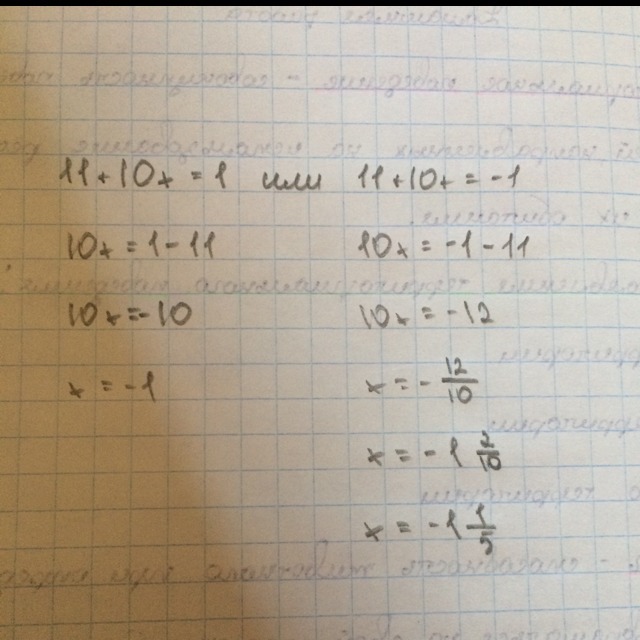 11+10x=1 или 11+10x=-1
10x=1-11 10x=-1-11
10x=-10 10x=-12
x=-1 x=-12/10
x=-1 2/10
x=-1 1/5